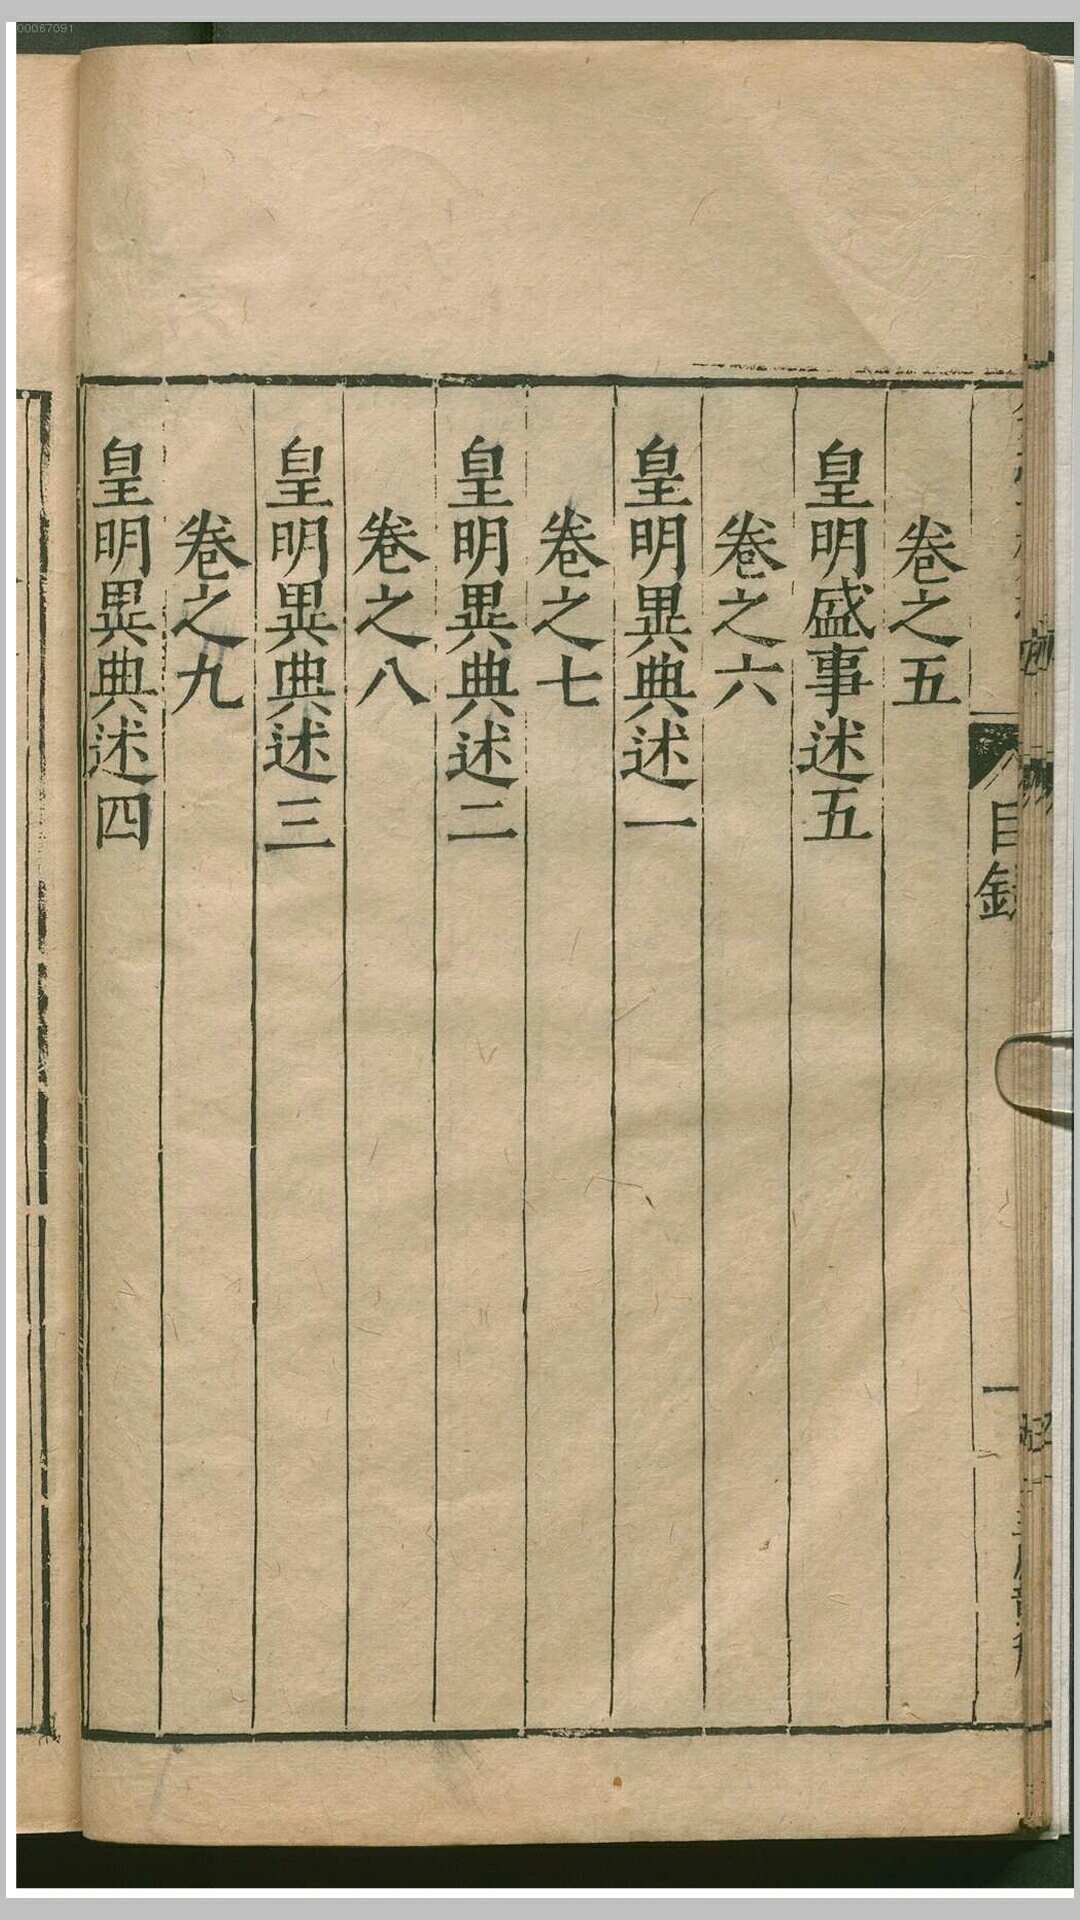 00067091
目錄
一
卷之五
皇明盛事述五
卷之六
皇明異典述一
卷之七
皇明異典述二
卷之八
皇明異典述三
卷之九
皇明異典述四